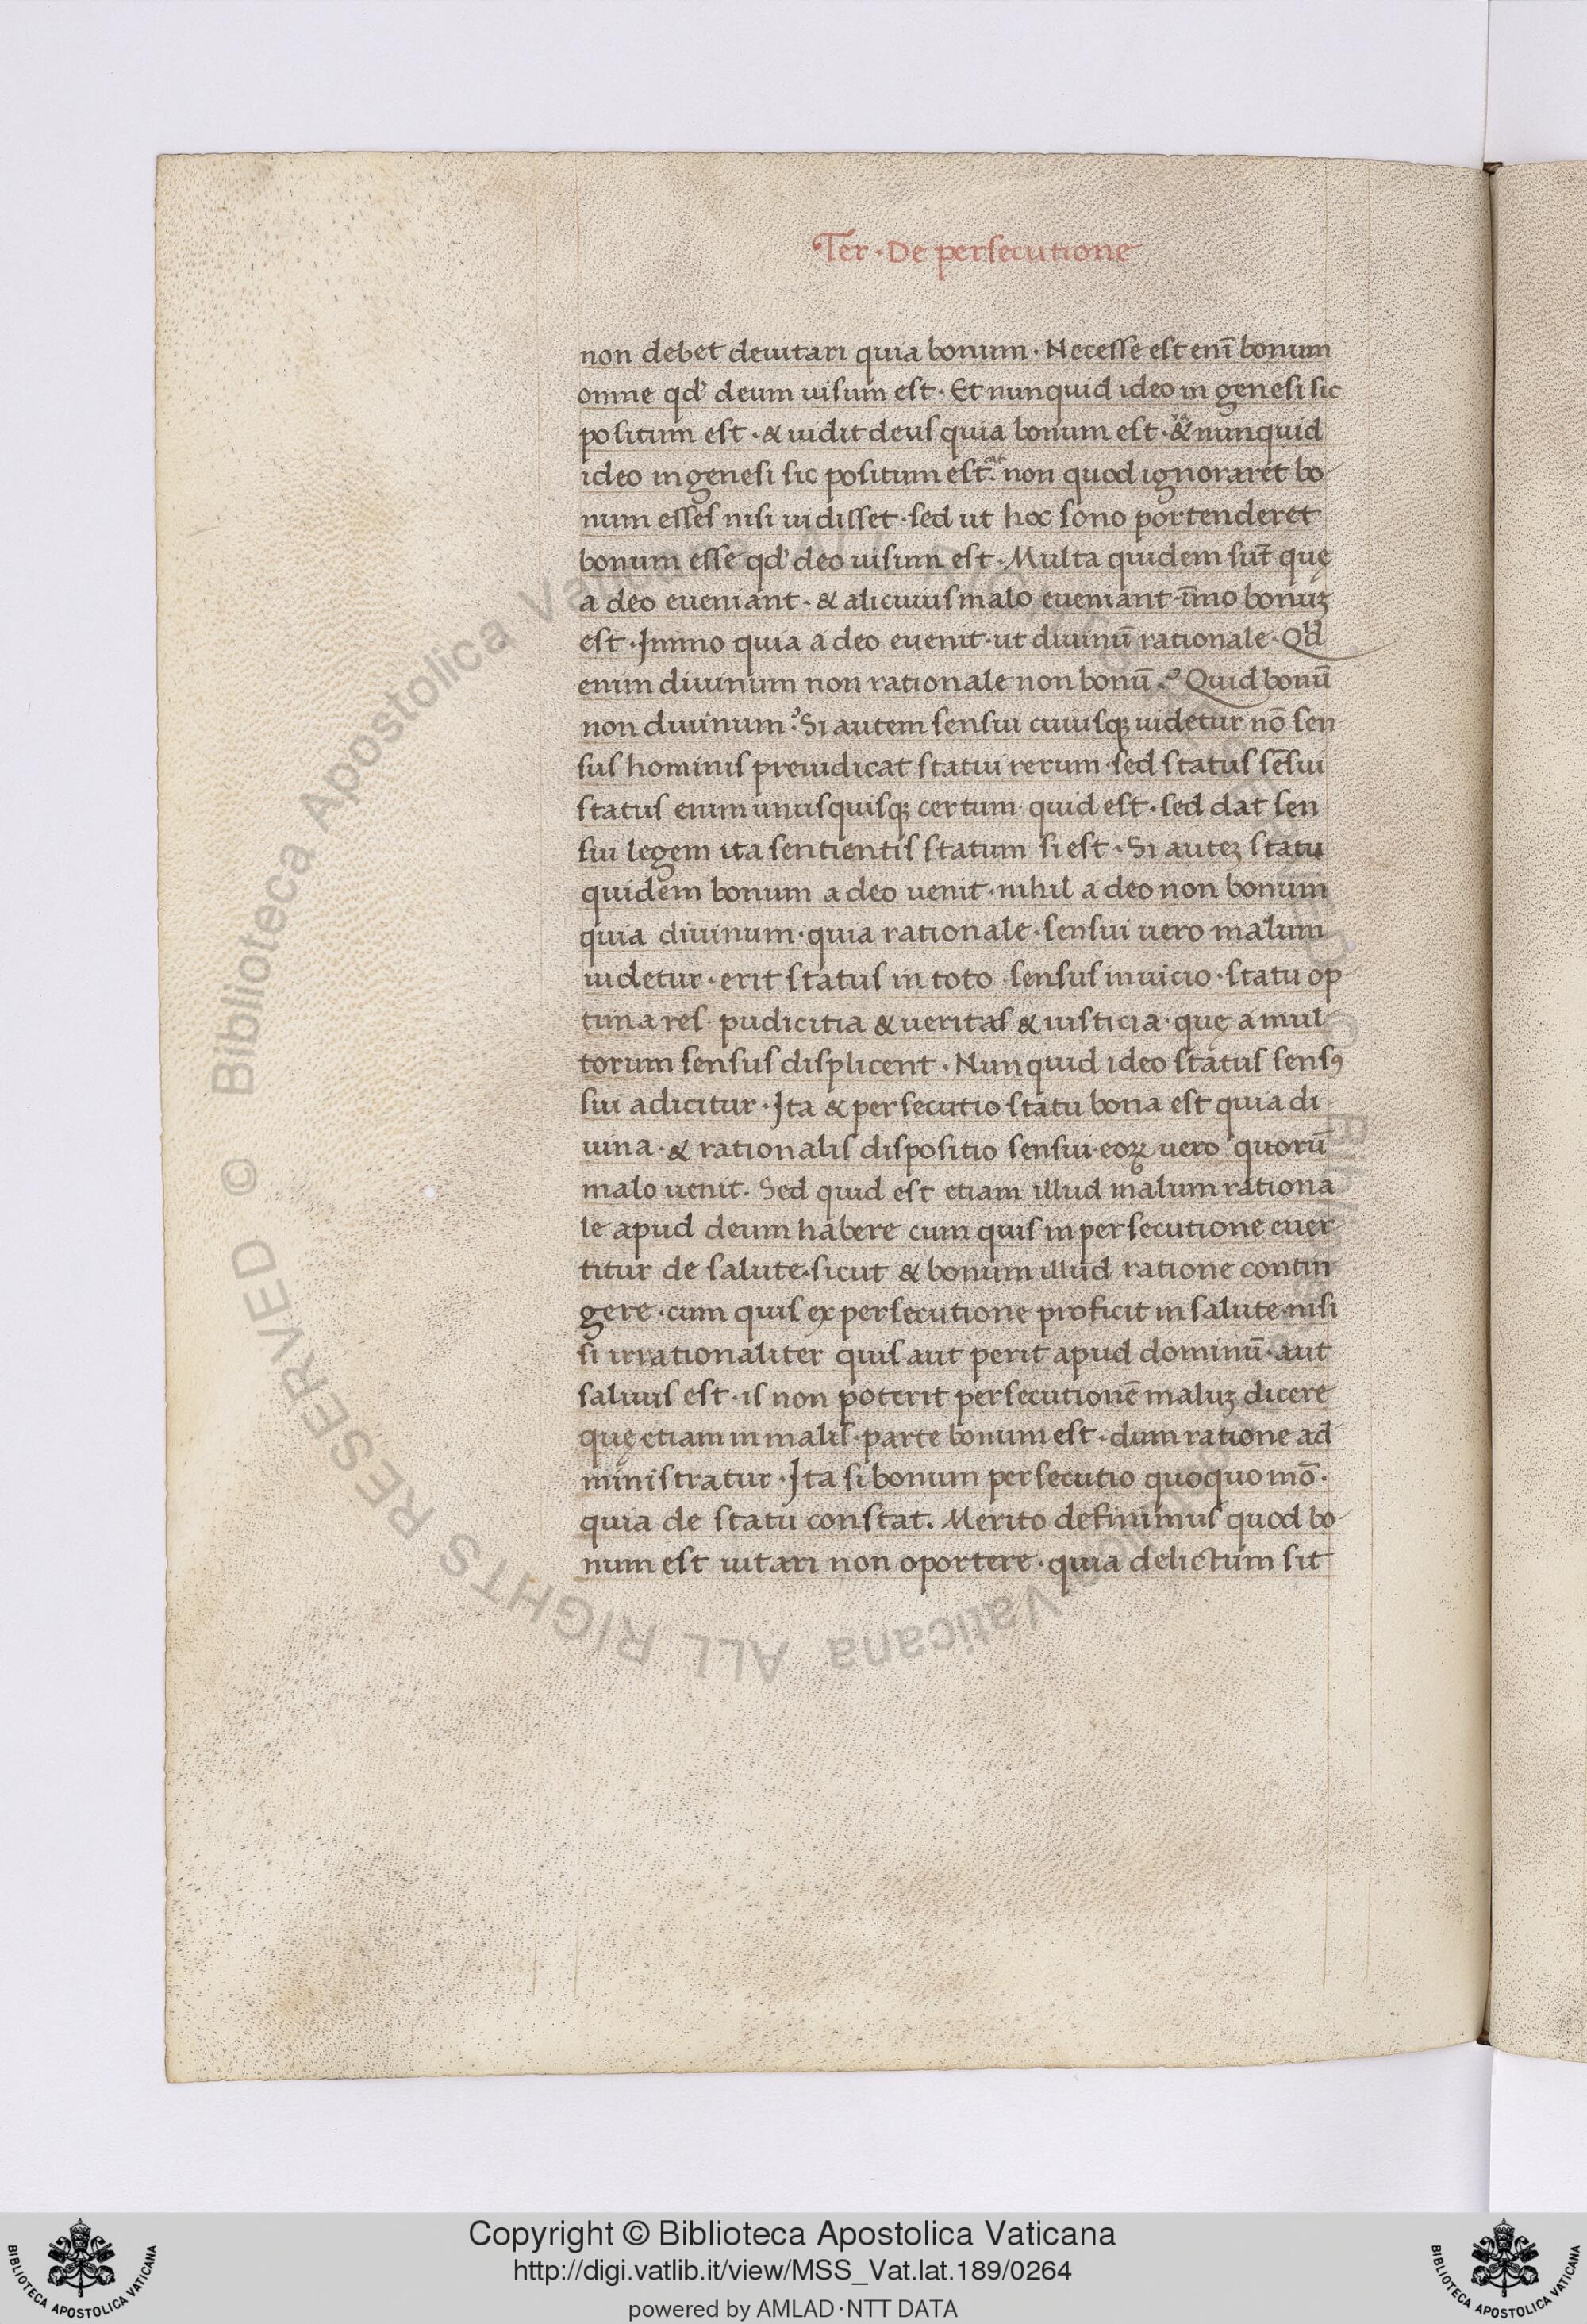 Ter · De persecutione
non debet deuitari quia bonum · Necesse est enī bonum
omne qd' deum uisum est · Et nunquid ideo in genesi sic
positum est · & uidit deus quia bonum est · & nunquid
ideo in genesi sic positum est · non quod ignoraret bo
num esses nisi uidisset · sed ut hoc sono portenderet
bonum esse qd' deo uisum est · Multa quidem sut̄ quę
a deo eueniant · & alicuius malo eueniant · īmo bonuꝫ
est · Immo quia a deo euenit · ut diuinū rationale · Qd
enim diuinum non rationale non bonū ? Quid bonū
non diuinum ? Si autem sensui cuiusqꝫ uidetur nō sen
sus hominis preiudicat statui rerum · sed status sēsui
status enim unusquisqꝫ certum quid est · sed dat sen
sui legem ita sentientis statum si est · Si auteꝫ statu
quidem bonum a deo uenit · nihil a deo non bonum
quia diuinum · quia rationale · sensui uero malum
uidetur · erit status in toto · sensus in uicio · statu op
tima res · pudicitia & ueritas & iusticia · quę a mul
torum sensus displicent · Nunquid ideo status sensꝰ
sui adicitur · Ita & persecutio statu bona est quia di
uina · & rationalis dispositio sensui · eoꝝ uero quorū
malo uenit · Sed quid est etiam illud malum rationa
le apud deum habere cum quis in persecutione euer
titur de salute · sicut & bonum illud ratione contin
gere · cum quis ex persecutione proficit in salute · nisi
si irrationaliter quis aut perit apud dominū · aut
saluus est · is non poterit persecutionē maluꝫ dicere
quę etiam in malis · parte bonum est · dum ratione ad
ministratur · Ita si bonum persecutio quoquo mō ·
quia de statu constat. Merito definimus quod bo
num est uitari non oportere · quia delictum sit
© Biblioteca Apostolica Vaticana ALL RIGHTS RESERVED
Copyright © Biblioteca Apostolica Vaticana
http://digi.vatlib.it/view/MSS_Vat.lat.189/0264
powered by AMLAD·NTT DATA
BIBLIOTECA APOSTOLICA VATICANA
BIBLIOTECA APOSTOLICA VATICANA